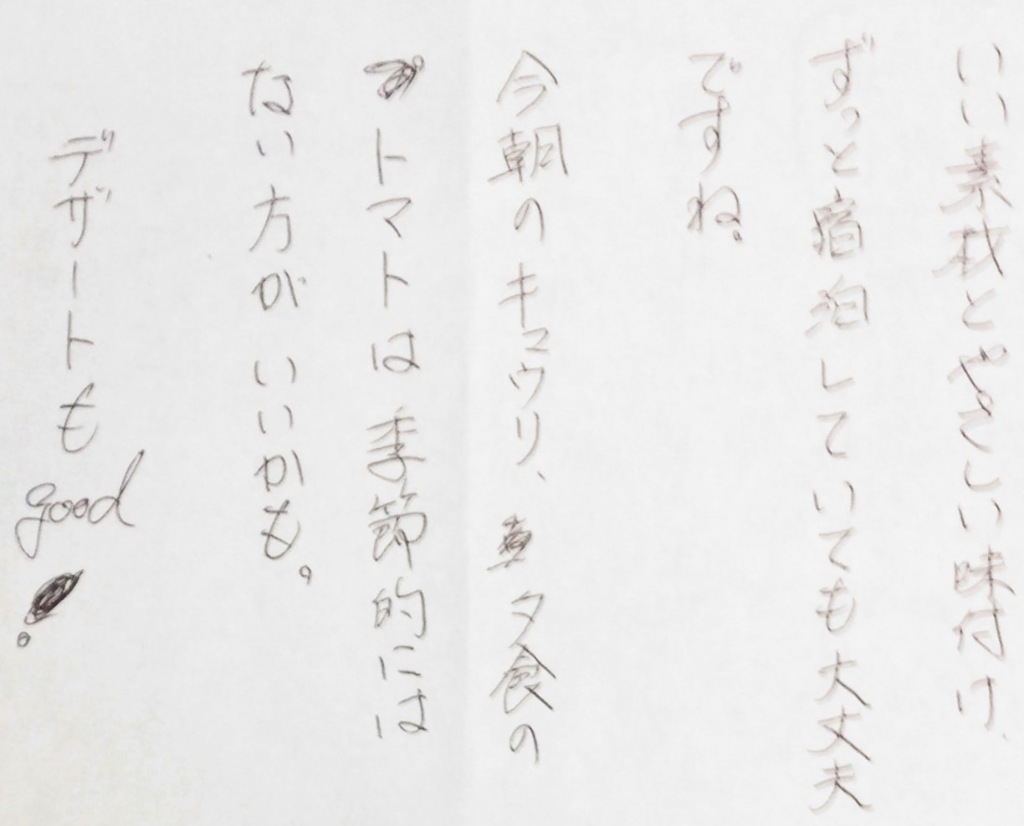 いい素材とやさしい味付け、
ずっと宿泊していても大丈夫
ですね。
今朝のキュウリ、夕食の
トマトは季節的には
ない方がいいかも。
デザートも
good!